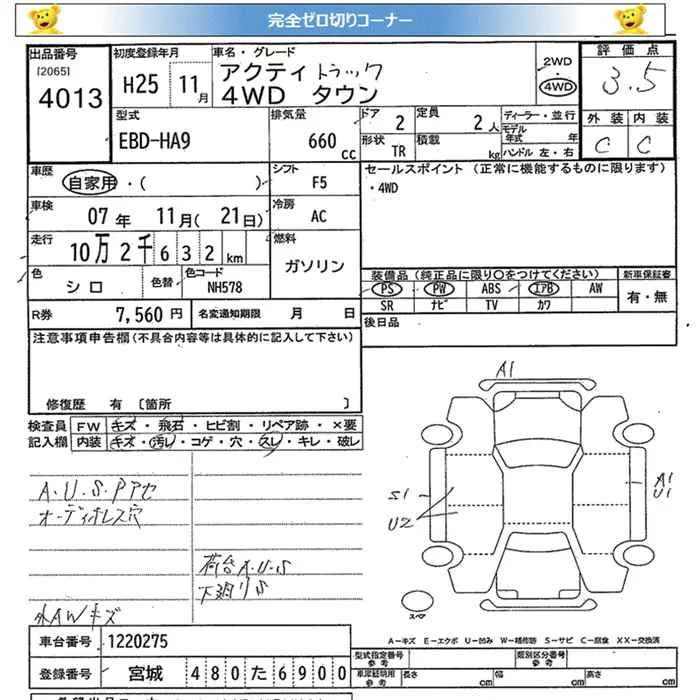 完全ゼロ切りコーナー
出品番号
[2065]
4013
初度登録年月
H25 11月
車名・グレード
アクティ トラック
4WD タウン
2WD
4WD
評価点
3.5
外装 内装
C C
型式
EBD-HA9
排気量
660 cc
ドア
2
定員
2人
形状
TR
積載
kg
ディーラー・並行
モデル年式 年
ハンドル 左・右
車歴
自家用・( )
シフト
F5
セールスポイント (正常に機能するものに限ります)
・4WD
車検
07年 11月( 21日)
冷房
AC
走行
10万2千632km
燃料
ガソリン
色
シロ
色替
色コード
NH578
装備品(純正品に限り○をつけてください)
PS PW ABS エアB AW
SR ナビ TV カワ
新車保証書
有・無
R券
7,560円
名変通知期限 月 日
後日品
注意事項申告欄(不具合内容等は具体的に記入して下さい)
修復歴 有 〔箇所 〕
検査員記入欄
FW キズ・飛石・ヒビ割・リペア跡・×要
内装 キズ・汚レ・コゲ・穴・スレ・キレ・破レ
A.U.S.Pアセ
オーディオレス穴
荷台A.U.S
下廻りS
外AWキズ
A1
S1
U2
A1
U1
スペア
A-キズ E-エクボ U-凹み W-補修跡 S-サビ C-腐食 XX-交換済
車台番号
1220275
登録番号
宮城 480た6900
型式指定番号
参考
類別区分番号
参考
車岸証明用
参考
長さ cm 幅 cm 高さ cm